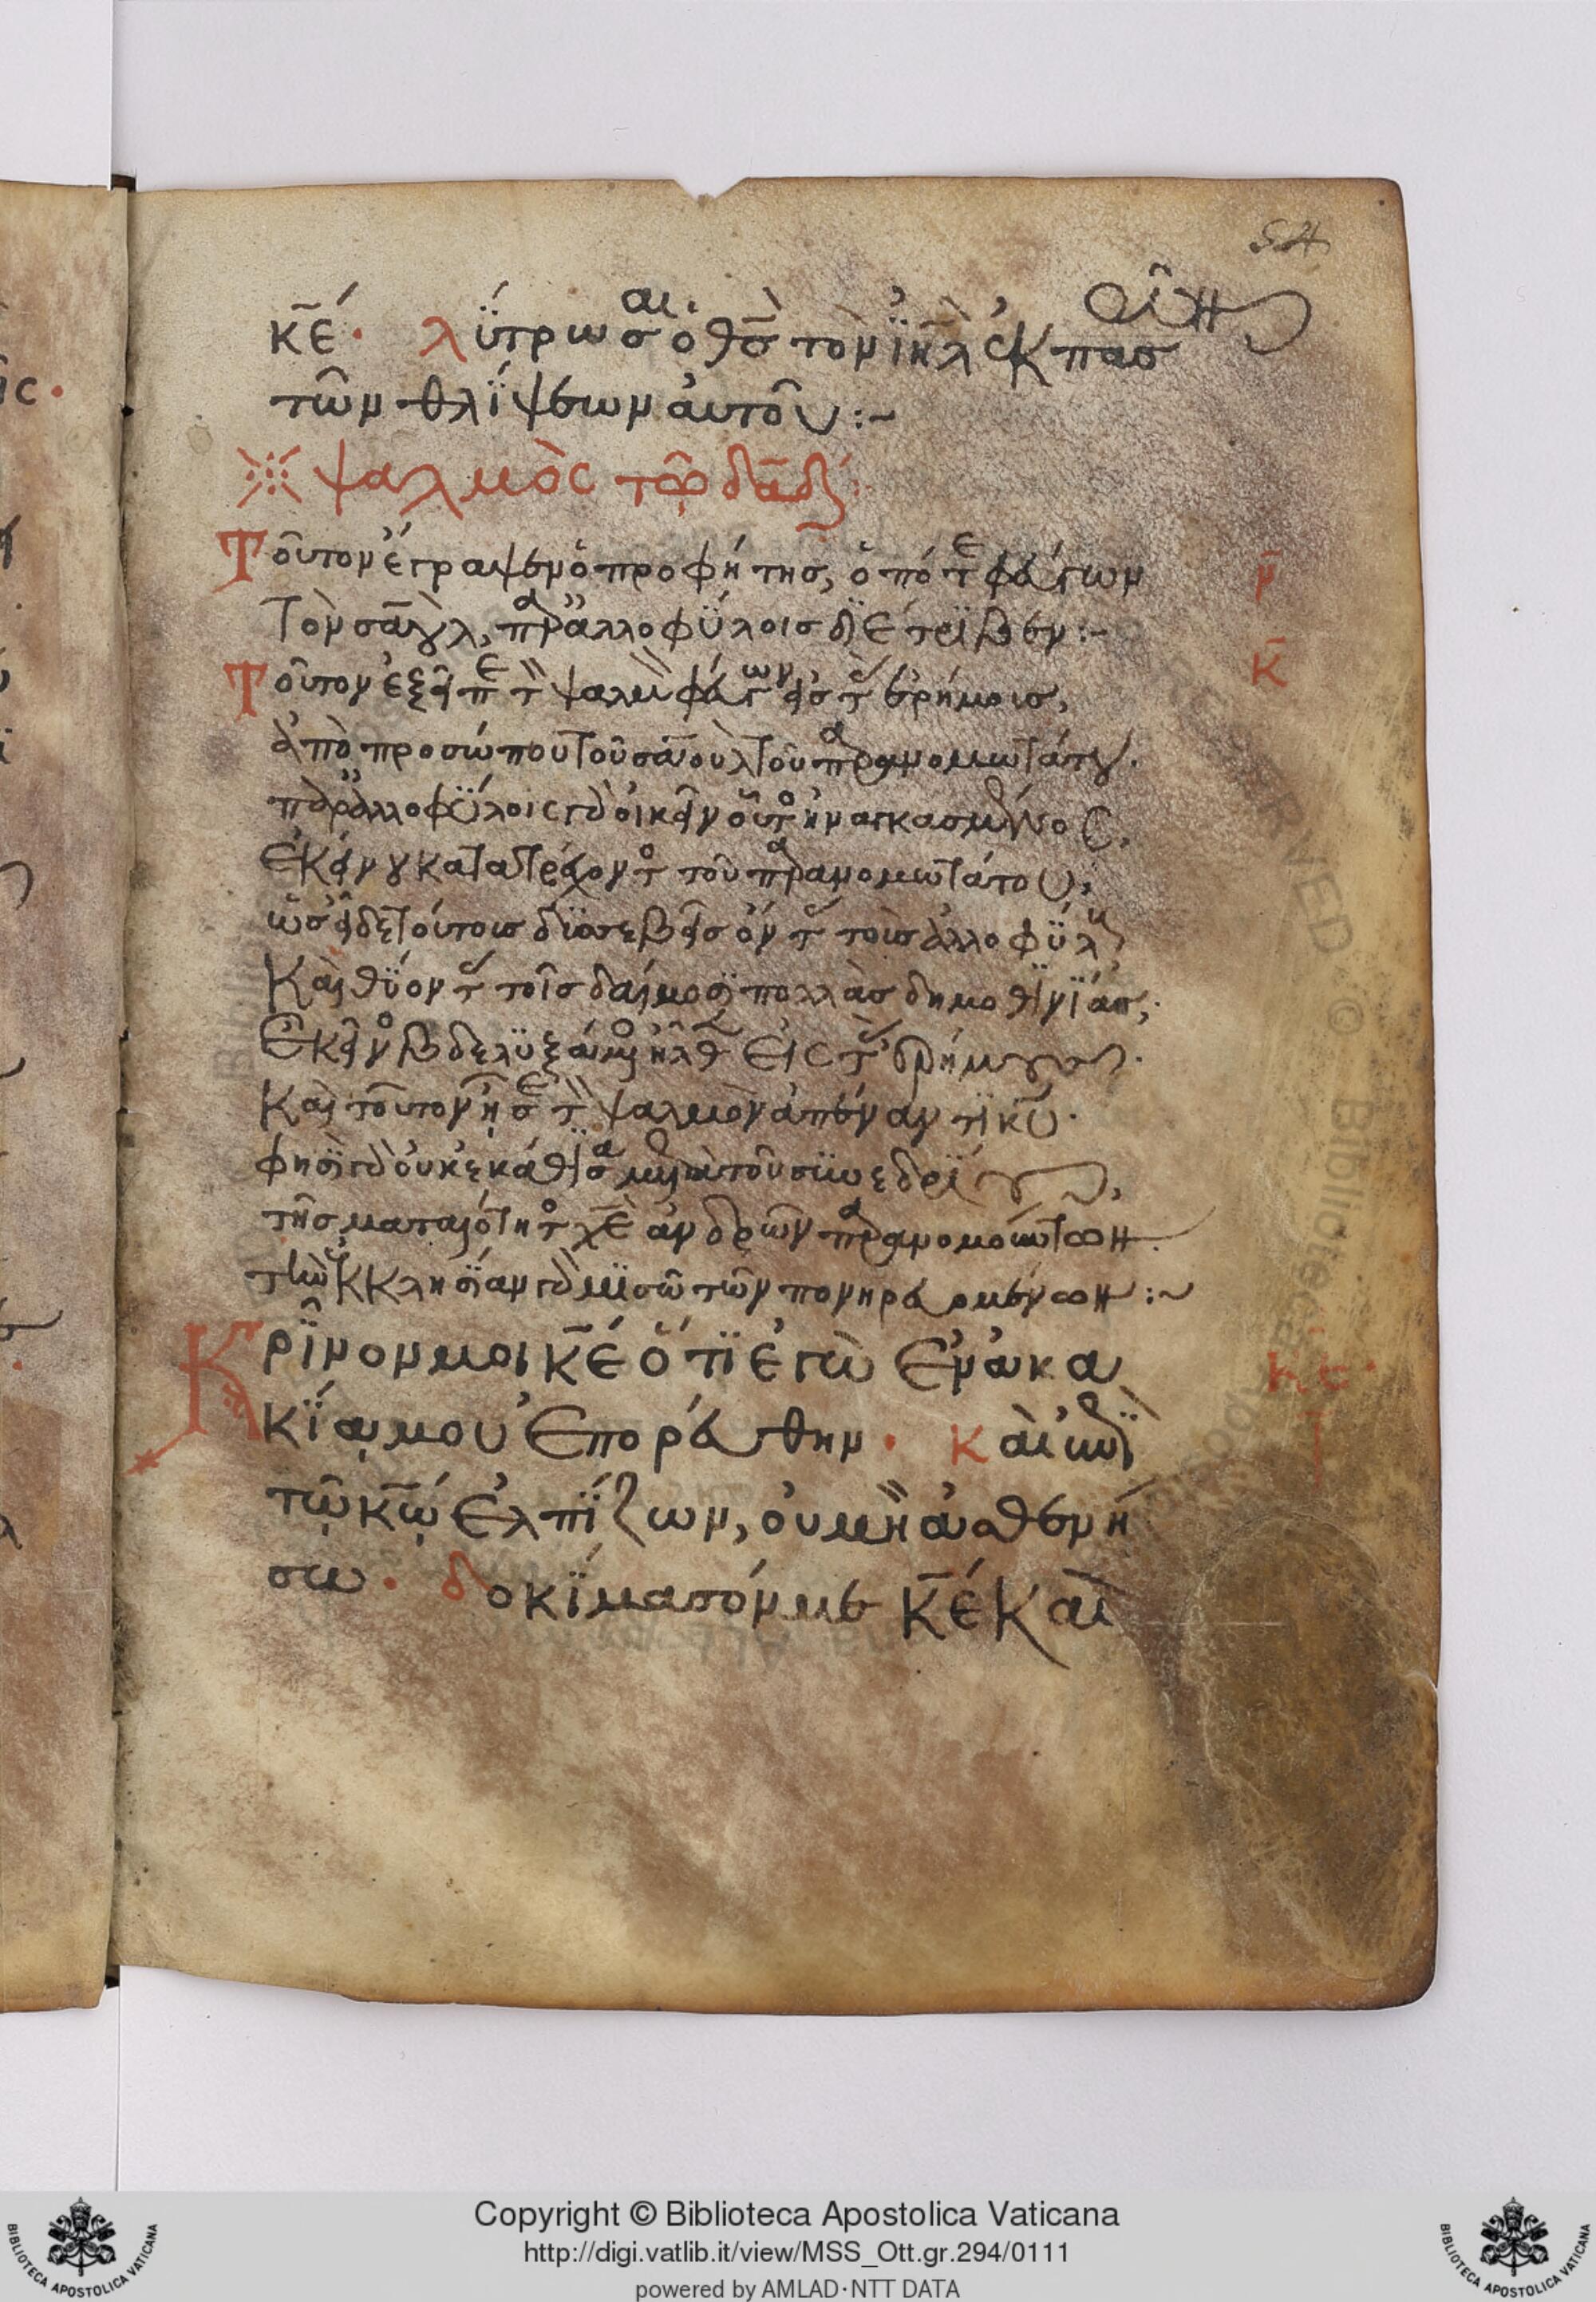 54
κ̅ε̅· λύτρωσαι ὁ θ̅ς̅ τὸν ἰη̅λ ἐκ πασῶν
τῶν θλίψεων αὐτοῦ:~
※ ψαλμὸς τῷ δα̅δ:
Τοῦτον ἔγραψεν ὁ προφήτης, ὁπότε φεύγων μ̅
Τὸν σαοὺλ, παρ' ἀλλοφύλοις διέτριβεν:~
Τοῦτον ἐξεῖπε τὸν ψαλμὸν φεύγων εἰς τὰς ἐρήμοις, κ̅
ἀπὸ προσώπου τοῦ σαοὺλ τοῦ παρανομωτάτου.
παρ' ἀλλοφύλοις γὰρ οἰκεῖν οὗτος ἠναγκασμένος,
Ἐκεῖνου κατατρέχοντος τοῦ παρανομωτάτου,
ὡς εἶδε τούτοις δυσσεβεῖς ὄντας τοῖς ἀλλοφύλοις
Καὶ θύοντας τοῖς δαίμοσι πολλὰς
βδελυξάμενος ἦλθεν εἰς τὰς ἐρήμους.
Καὶ τοῦτον ᾖσε τὸν ψαλμὸν ἀπέναντι κ̅υ̅.
φησὶ γὰρ οὐκ ἐκάθισα μετὰ τοῦ συνεδρίου,
τῆς ματαιότητος χ̅ε̅ ἀνδρῶν παρανομωτάτων.
τὴν ἐκκλησίαν γὰρ μισῶ τῶν πονηρευομένων:~
Κρῖνον μοι κ̅ε̅ ὅτι ἐγὼ ἐν ἀκα κε·
κίᾳ μου ἐπορεύθην· καὶ ἐπὶ
τῷ κ̅ῳ̅ ἐλπίζων, οὐ μὴ ἀσθενή
σω· δοκίμασόν με κ̅ε̅ καὶ
Copyright © Biblioteca Apostolica Vaticana
http://digi.vatlib.it/view/MSS_Ott.gr.294/0111
powered by AMLAD·NTT DATA
BIBLIOTECA APOSTOLICA VATICANA
BIBLIOTECA APOSTOLICA VATICANA